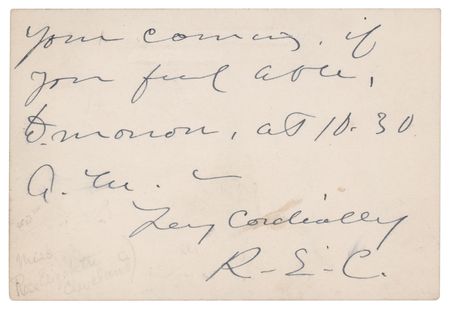 your coming, if
you feel able,
at 10.30
A.M. —
Very Cordially
R-E-C.
Miss
Rose Elizabeth
Cleveland